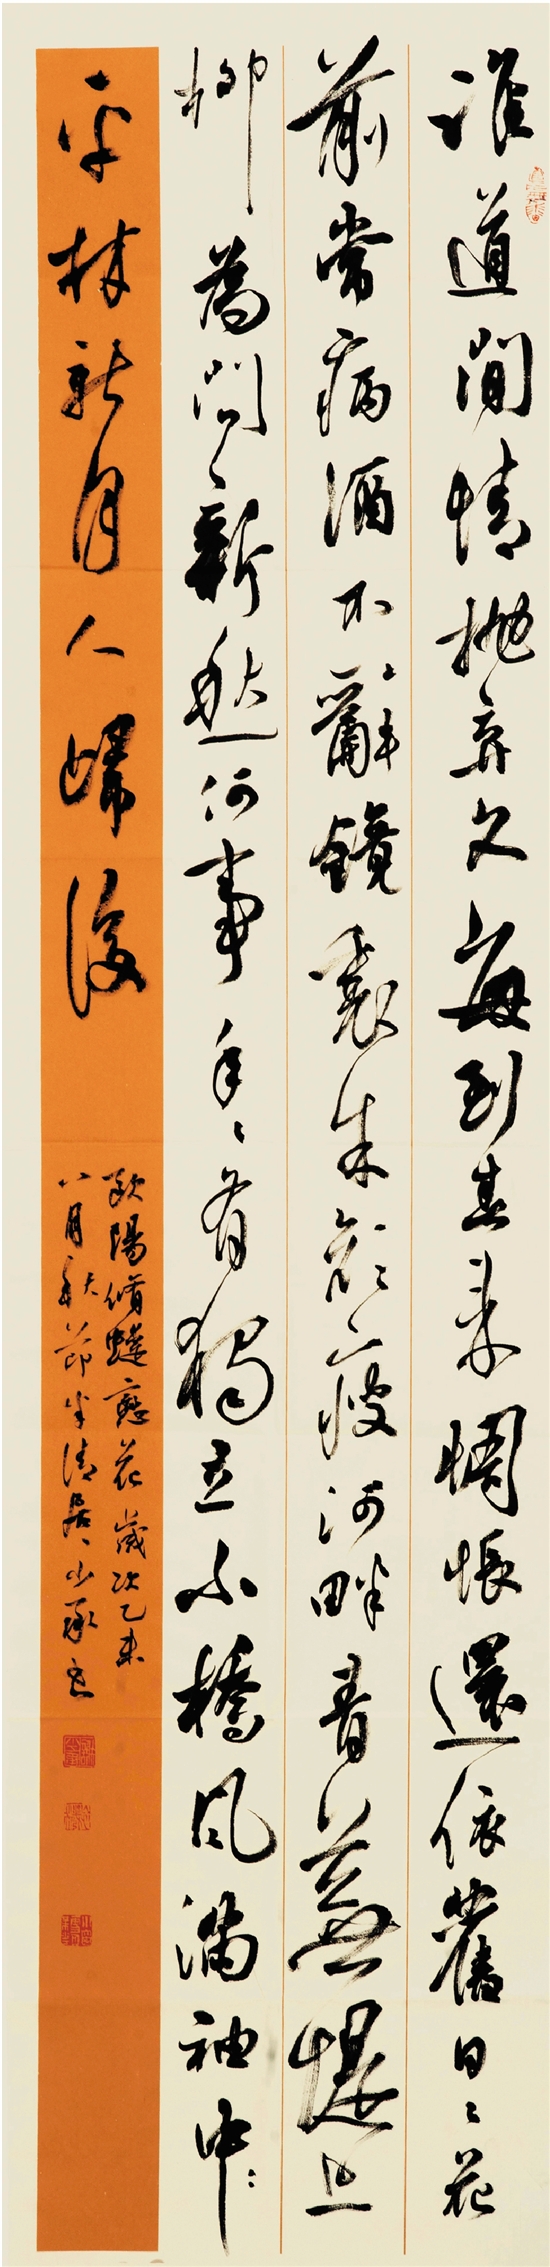 誰道閒情抛弃久每到春来惆悵還依舊日々花
前常病酒不辭鏡裏朱顏瘦河畔青蕪堤上
柳為問新愁何事年々有獨立小橋風滿袖中
平林新月人歸後
歐陽脩蝶戀花歲次乙未
八月秋節半清居小承書